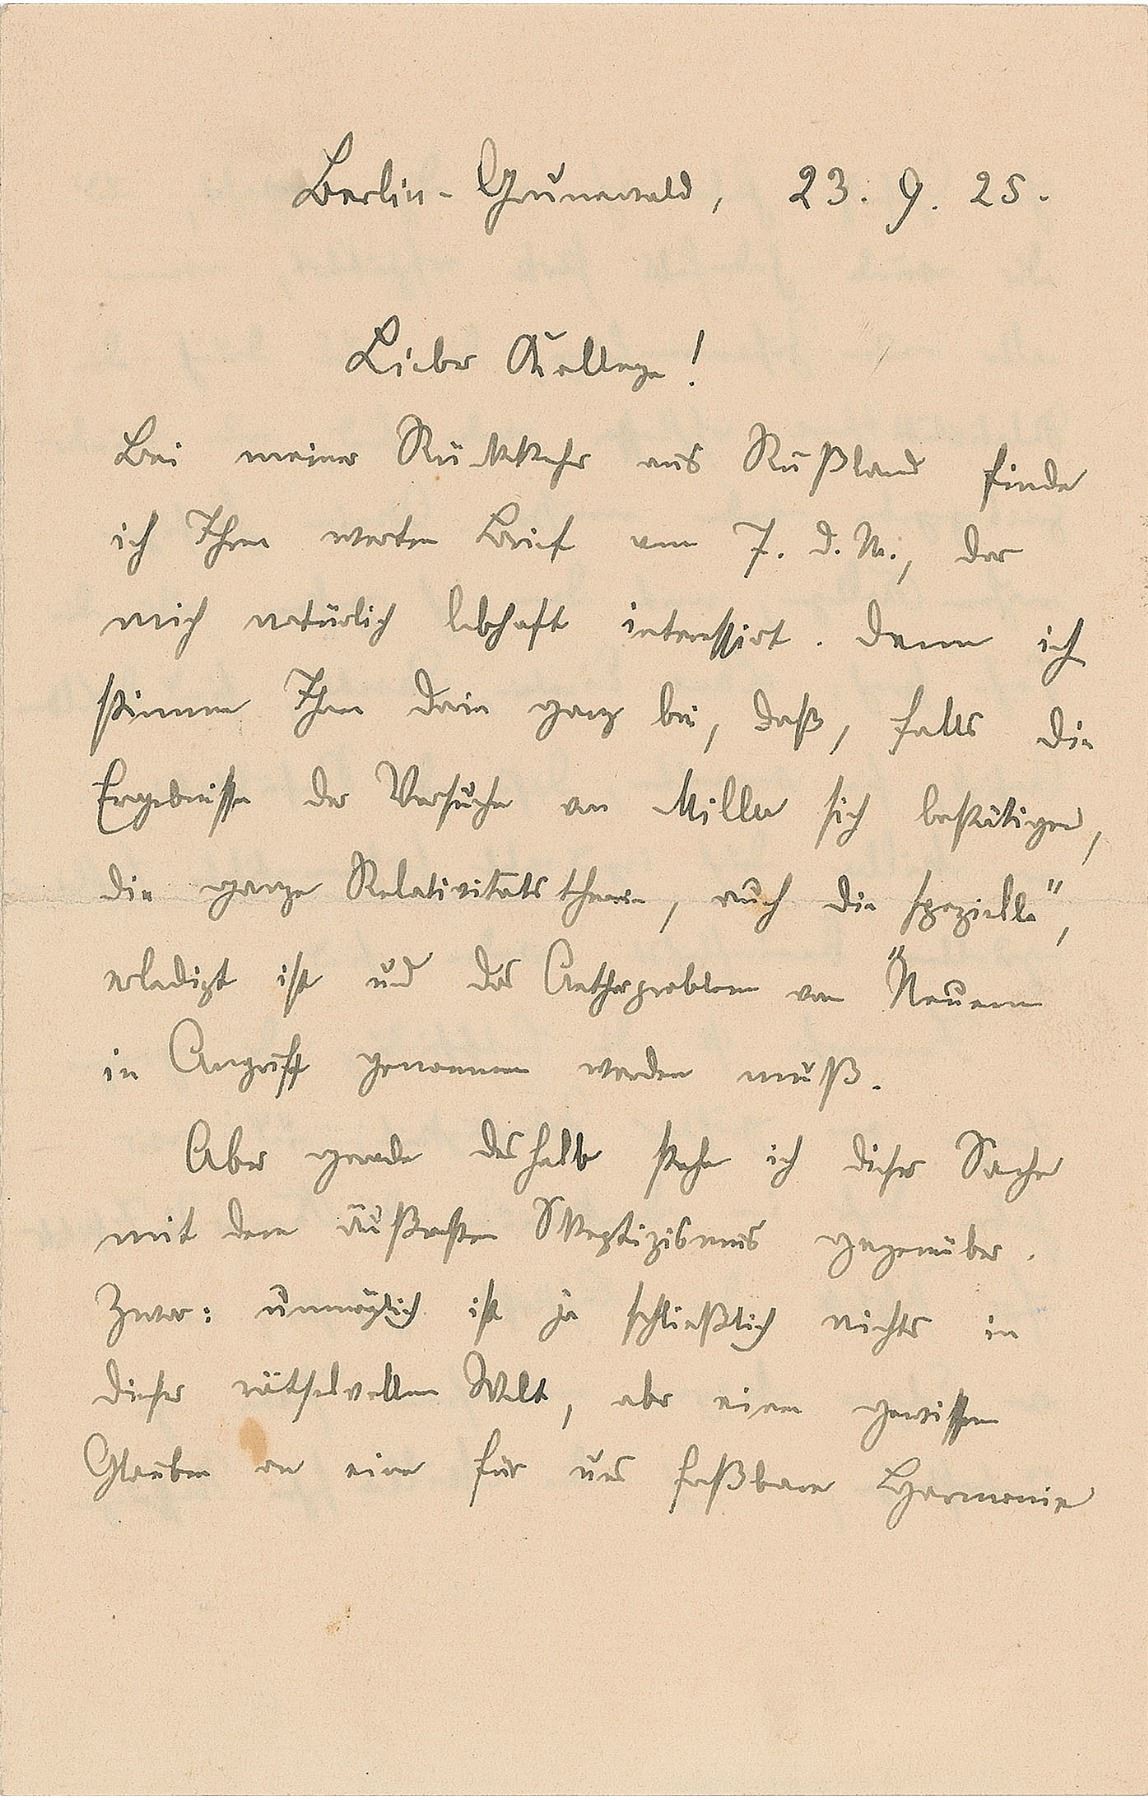 Berlin-Grunewald, 23. 9. 25.
Lieber Kollege!
Bei meiner Rückkehr aus Rußland finde
ich Ihren werten Brief vom 7. d. M., der
mich natürlich lebhaft interessirt. Denn ich
stimme Ihnen darin ganz bei, daß, falls die
Ergebnisse der Versuche von Miller sich bestätigen,
die ganze Relativitätstheorie, auch die spezielle",
erledigt ist und das Aetherproblem von "Neuem
in Angriff genommen werden muß.
Aber gerade deshalb stehe ich dieser Sache
mit dem äußersten Skeptizismus gegenüber.
Zwar: unmöglich ist ja schließlich nichts in
dieser rätselvollen Welt, aber einen gewissen
Glauben an eine für uns faßbare Harmonie